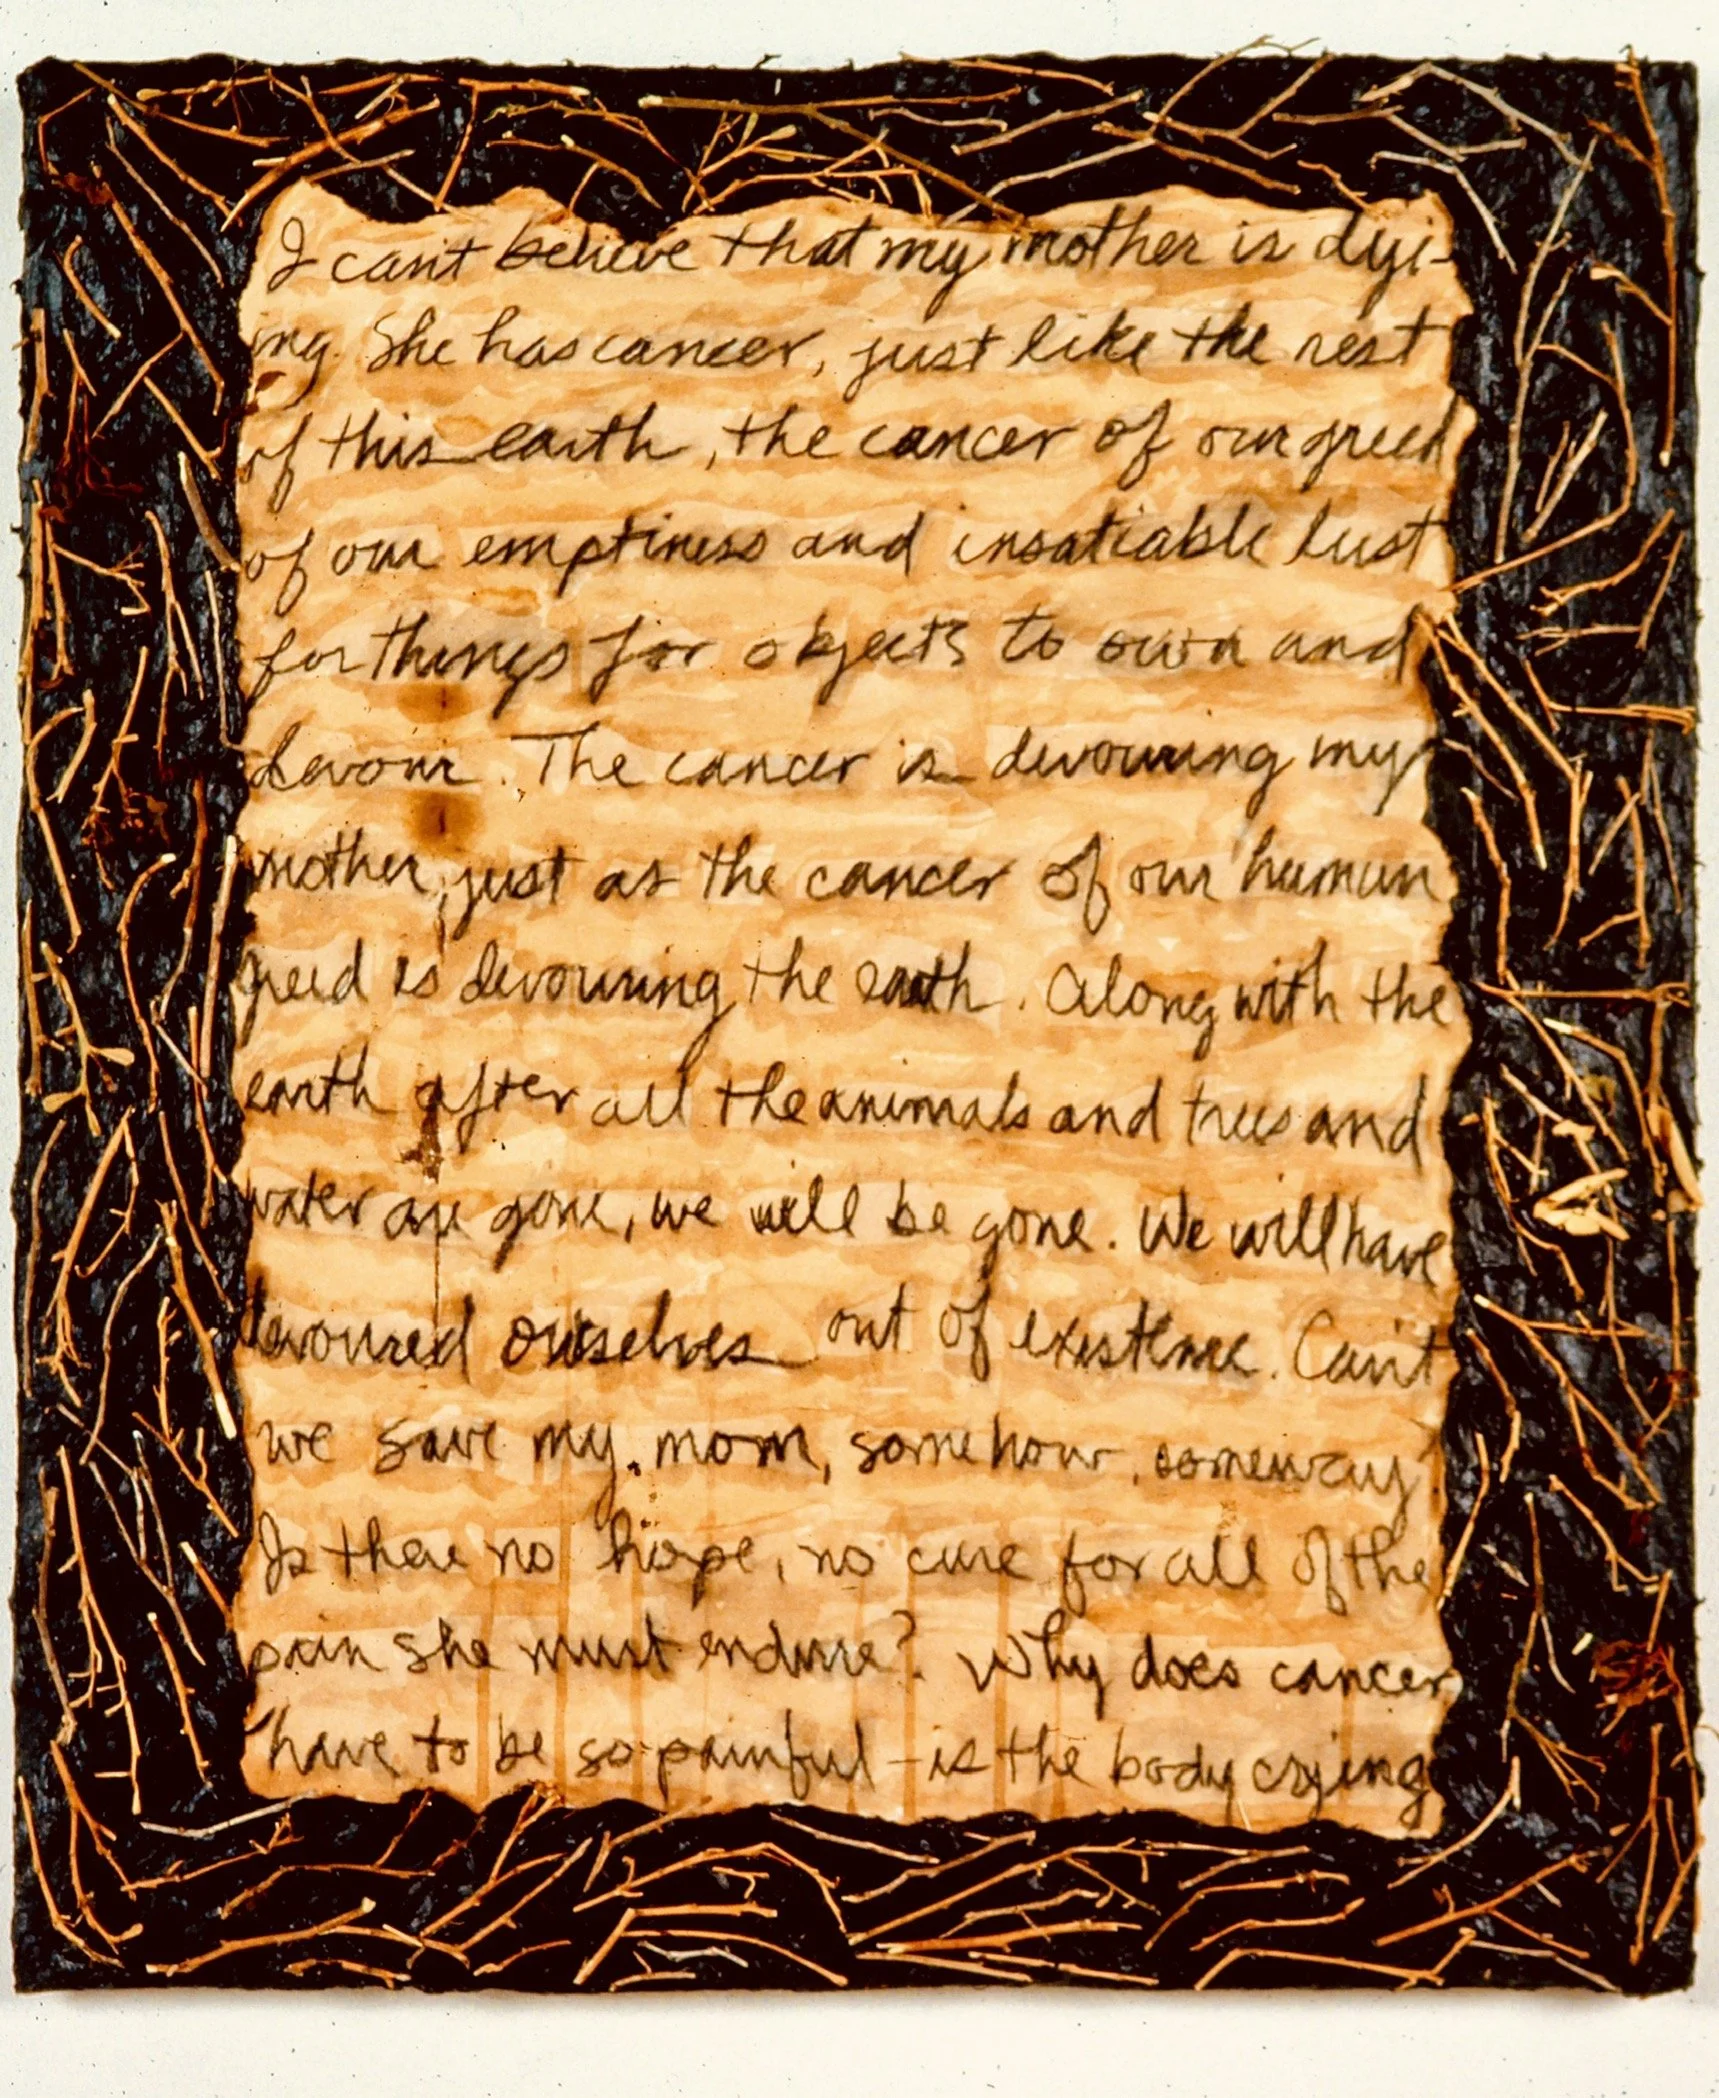 I can't believe that my mother is dyi-
ing. She has cancer, just like the rest
of this earth, the cancer of our greed
of our emptiness and insatiable lust
for things for objects to own and
devour. The cancer is devouring my
mother, just as the cancer of our human
greed is devouring the earth. Along with the
earth after all the animals and trees and
water are gone, we will be gone. We will have
devoured ourselves out of existence. Can't
we save my mom, somehow, someway?
Is there no hope, no cure for all of the
pain she must endure? Why does cancer
have to be so painful - is the body crying